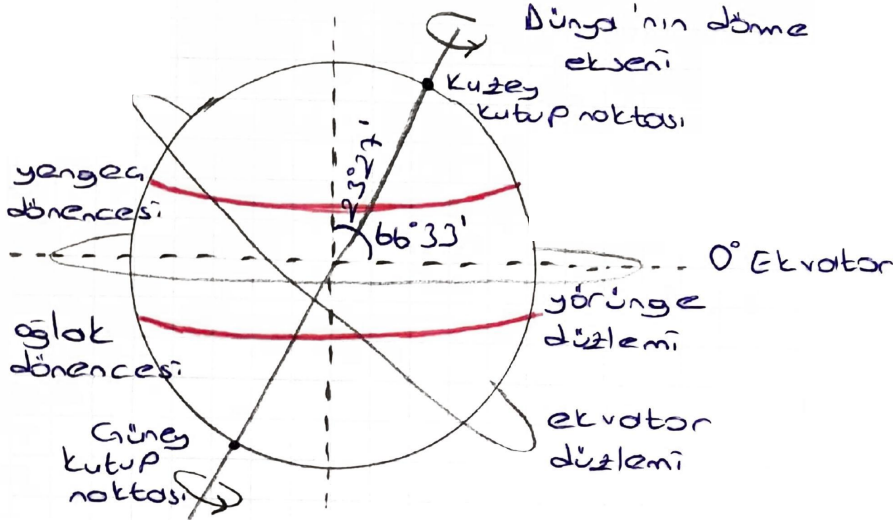 Dünya'nın dönme
ekseni
Kuzey
kutup noktası
23°27'
66°33'
yengeç
dönencesi
0° Ekvator
yörünge
düzlemi
oğlak
dönencesi
ekvator
düzlemi
Güney
kutup
noktası